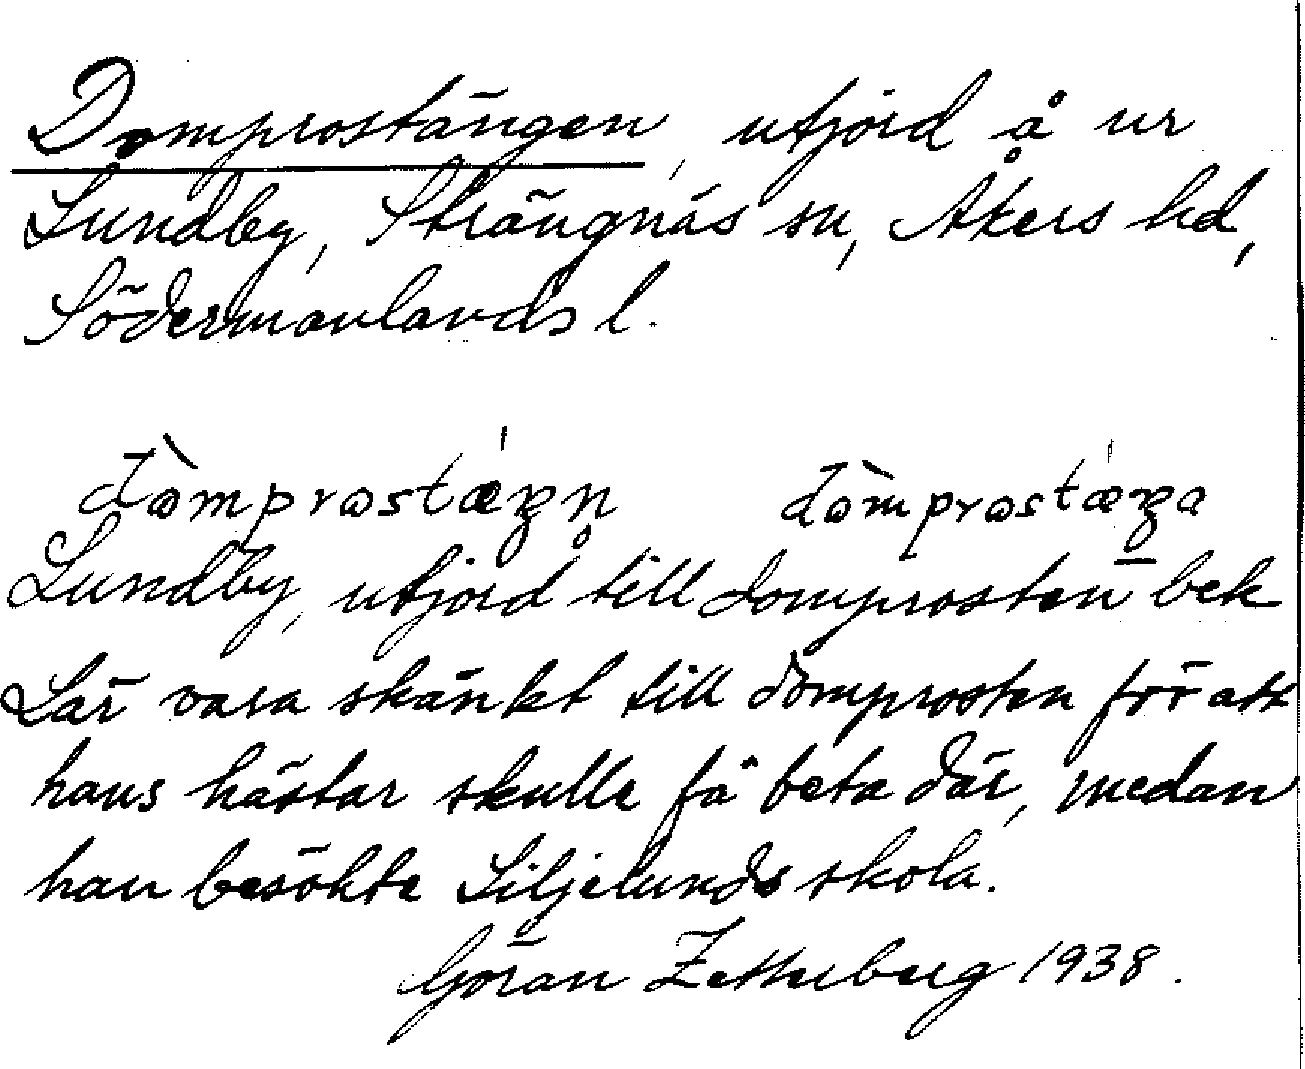 Domprostängen, utjord å ur
Lundby, Strängnäs sn, Åkers hd,
Södermanlands l.
dòmprostǽŋn̥ dòmprostǽŋa
Lundby, utjord till domprosten bek
Lär vara skänkt till domprosten för att
hans hästar skulle få beta där, medan
han besökte Liljelunds skola.
Göran Zetterberg 1938.